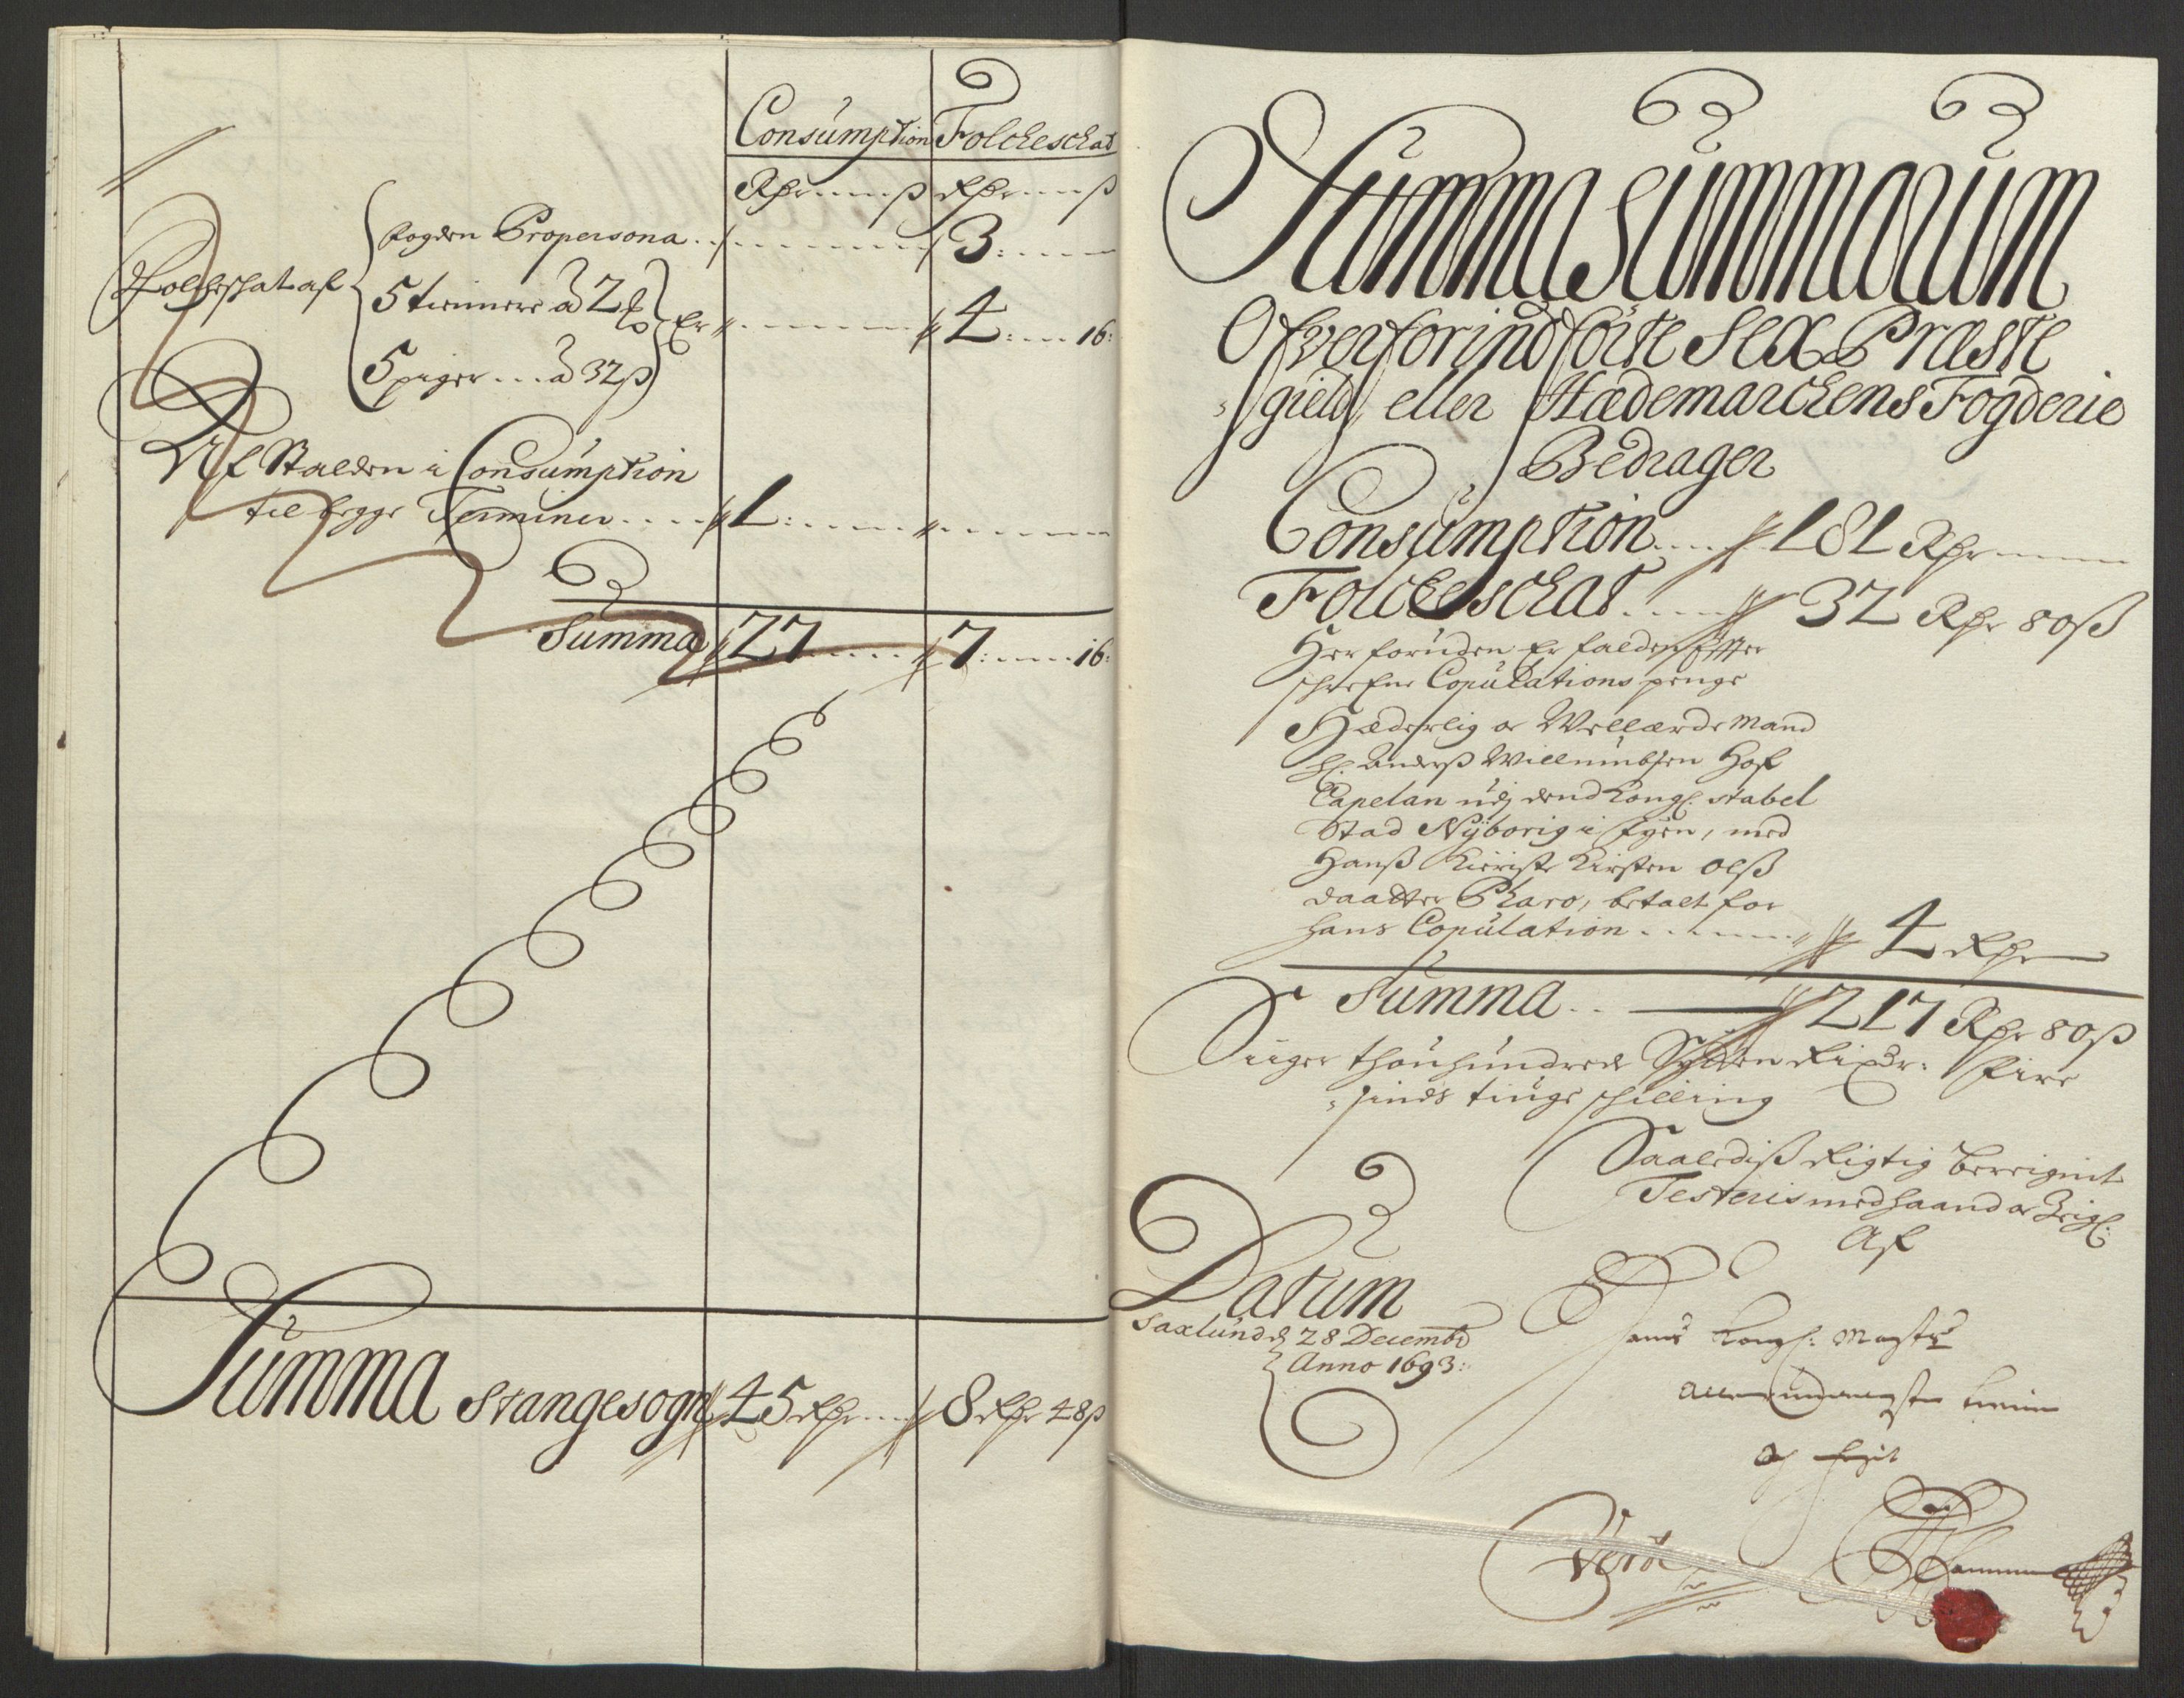 Consumption Folckeschat
Rdr ß Rdr ß
fogden Propersona 3:
Folckeschat af 5 tienniere â 2 Er 4: 16:
5 piger â 32 ß
Af Stalden i Consumption
til begge Terminer 1:
Summa 27 7: 16:
Summa Stangesogn 45 Rdr 8 Rdr 48 ß
Summa Summarum
Ofverforindførte Sex Præste
gield, eller Hædemarckens Fogderie
Bedrager
Consumption 181 Rdr
Folckeschat 32 Rdr 80 ß
Her foruden Er falden Efter
schrefne Copulations penge
Hæderlig oc Wellærde Mand
Hr. Anders Willumbsen Hof
Capelan udj dend Kongl. stabel
Stad Nyborig i fyen, med
Hanß Kieriste Kirsten Olß
daatter Pharo, betalt for
hans Copulation 4 Rdr
Summa 217 Rdr 80 ß
Siiger thouhundrede Sytten Rixdr: Fire
sinds tiuge schilling
Saalediß Rigtig bereignit
Testeris med haand oc Zeigl:
Af
Datum
Saxlund d 28 Decembr
Anno 1693:
Hans Kongl: Mayts
Allerunderdanigste tienner